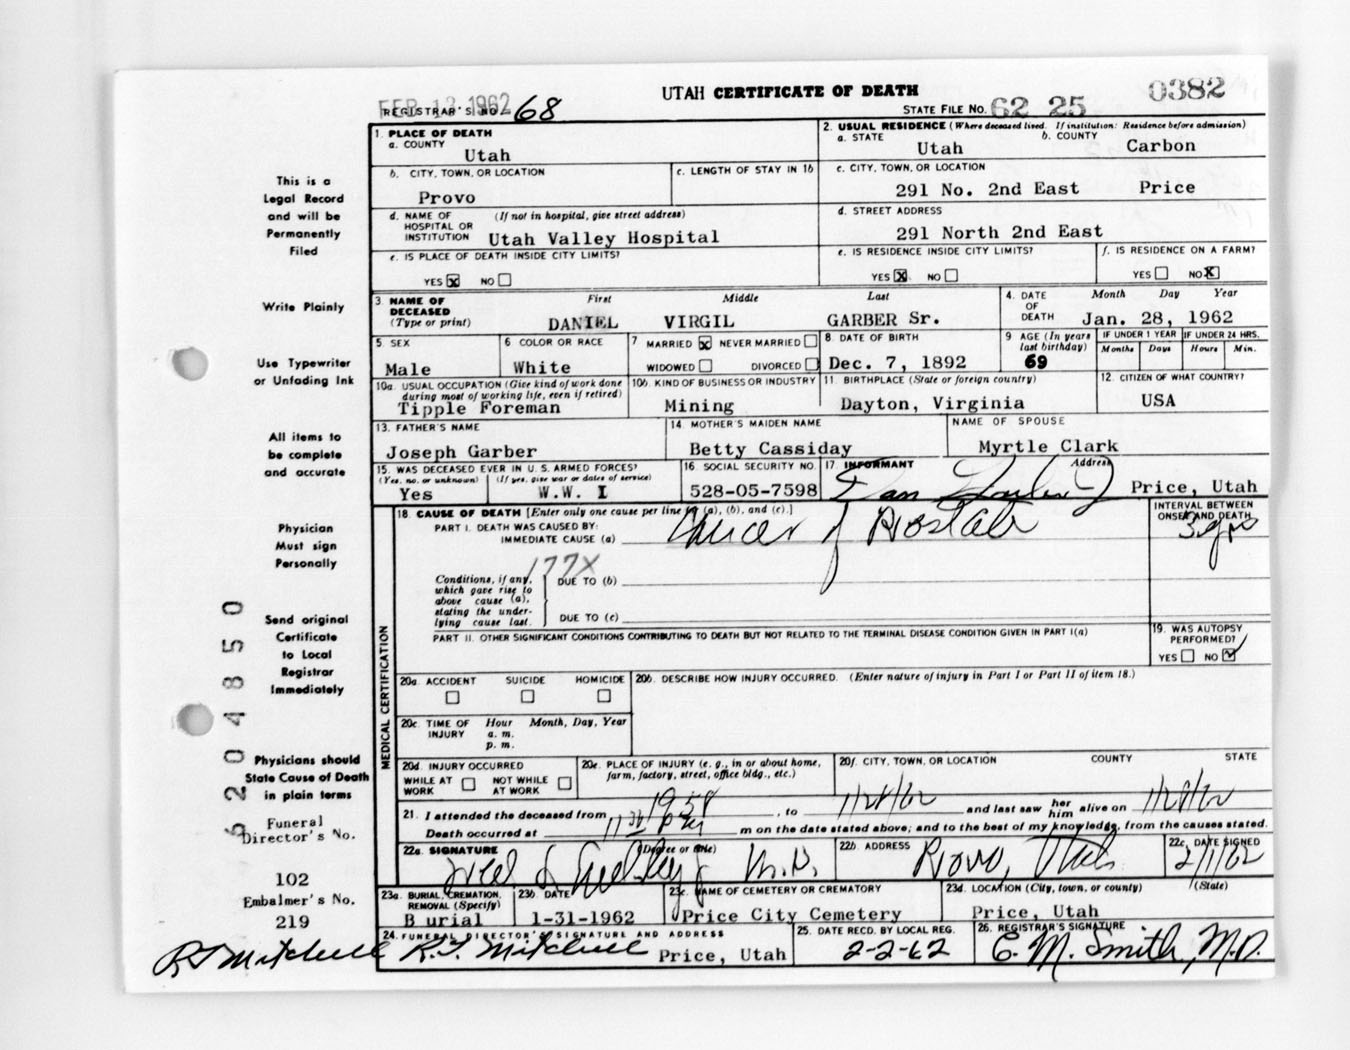 UTAH CERTIFICATE OF DEATH
0382
FEB 13 1962
REGISTRAR'S NO. 68
STATE FILE NO. 62 25
1. PLACE OF DEATH
a. COUNTY
Utah
2. USUAL RESIDENCE (Where deceased lived. If institution: Residence before admission)
a. STATE b. COUNTY
Utah Carbon
b. CITY, TOWN, OR LOCATION
Provo
c. LENGTH OF STAY IN 1b
c. CITY, TOWN, OR LOCATION
291 No. 2nd East Price
d. NAME OF HOSPITAL OR INSTITUTION (If not in hospital, give street address)
Utah Valley Hospital
d. STREET ADDRESS
291 North 2nd East
e. IS PLACE OF DEATH INSIDE CITY LIMITS?
YES X NO
e. IS RESIDENCE INSIDE CITY LIMITS?
YES X NO
f. IS RESIDENCE ON A FARM?
YES NO X
3. NAME OF DECEASED (Type or print)
First Middle Last
DANIEL VIRGIL GARBER Sr.
4. DATE OF DEATH Month Day Year
Jan. 28, 1962
5. SEX
Male
6. COLOR OR RACE
White
7. MARRIED X NEVER MARRIED
WIDOWED DIVORCED
8. DATE OF BIRTH
Dec. 7, 1892
9. AGE (In years last birthday)
69
IF UNDER 1 YEAR IF UNDER 24 HRS.
Months Days Hours Min.
10a. USUAL OCCUPATION (Give kind of work done during most of working life, even if retired)
Tipple Foreman
10b. KIND OF BUSINESS OR INDUSTRY
Mining
11. BIRTHPLACE (State or foreign country)
Dayton, Virginia
12. CITIZEN OF WHAT COUNTRY?
USA
13. FATHER'S NAME
Joseph Garber
14. MOTHER'S MAIDEN NAME
Betty Cassiday
NAME OF SPOUSE
Myrtle Clark
15. WAS DECEASED EVER IN U. S. ARMED FORCES?
(Yes, no, or unknown) (If yes, give war or dates of service)
Yes W.W. I
16. SOCIAL SECURITY NO.
528-05-7598
17. INFORMANT Address
Dan Garber Jr Price, Utah
18. CAUSE OF DEATH [Enter only one cause per line for (a), (b), and (c).]
PART I. DEATH WAS CAUSED BY:
IMMEDIATE CAUSE (a) Cancer of Prostate
INTERVAL BETWEEN ONSET AND DEATH
3 yrs
177X
Conditions, if any, which gave rise to above cause (a), stating the underlying cause last.
DUE TO (b)
DUE TO (c)
PART II. OTHER SIGNIFICANT CONDITIONS CONTRIBUTING TO DEATH BUT NOT RELATED TO THE TERMINAL DISEASE CONDITION GIVEN IN PART I(a)
19. WAS AUTOPSY PERFORMED?
YES NO ✓
MEDICAL CERTIFICATION
20a. ACCIDENT SUICIDE HOMICIDE
20b. DESCRIBE HOW INJURY OCCURRED. (Enter nature of injury in Part I or Part II of item 18.)
20c. TIME OF INJURY Hour Month, Day, Year
a. m.
p. m.
20d. INJURY OCCURRED
WHILE AT WORK NOT WHILE AT WORK
20e. PLACE OF INJURY (e. g., in or about home, farm, factory, street, office bldg., etc.)
20f. CITY, TOWN, OR LOCATION COUNTY STATE
21. I attended the deceased from 1958, to 1/28/62 and last saw her him alive on 1/28/62
Death occurred at m on the date stated above; and to the best of my knowledge, from the causes stated.
22a. SIGNATURE (Degree or title)
M.D.
22b. ADDRESS
Provo, Utah
22c. DATE SIGNED
2/1/62
23a. BURIAL, CREMATION, REMOVAL (Specify)
Burial
23b. DATE
1-31-1962
23c. NAME OF CEMETERY OR CREMATORY
Price City Cemetery
23d. LOCATION (City, town, or county) (State)
Price, Utah
24. FUNERAL DIRECTOR'S SIGNATURE AND ADDRESS
R.T. Mitchell Price, Utah
25. DATE RECD. BY LOCAL REG.
2-2-62
26. REGISTRAR'S SIGNATURE
E. M. Smith, M.D.
This is a
Legal Record
and will be
Permanently
Filed
Write Plainly
Use Typewriter
or Unfading Ink
All items to
be complete
and accurate
Physician
Must sign
Personally
Send original
Certificate
to Local
Registrar
Immediately
Physicians should
State Cause of Death
in plain terms
Funeral
Director's No.
102
Embalmer's No.
219
R T Mitchell
5204850